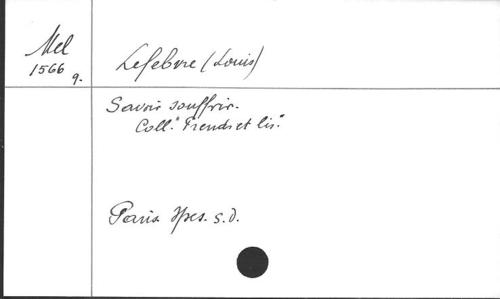 Mel
1566
9.
Lefebvre (Louis)
Savoir souffrir.
Coll. "Prends et lis."
Paris Spes. s.d.